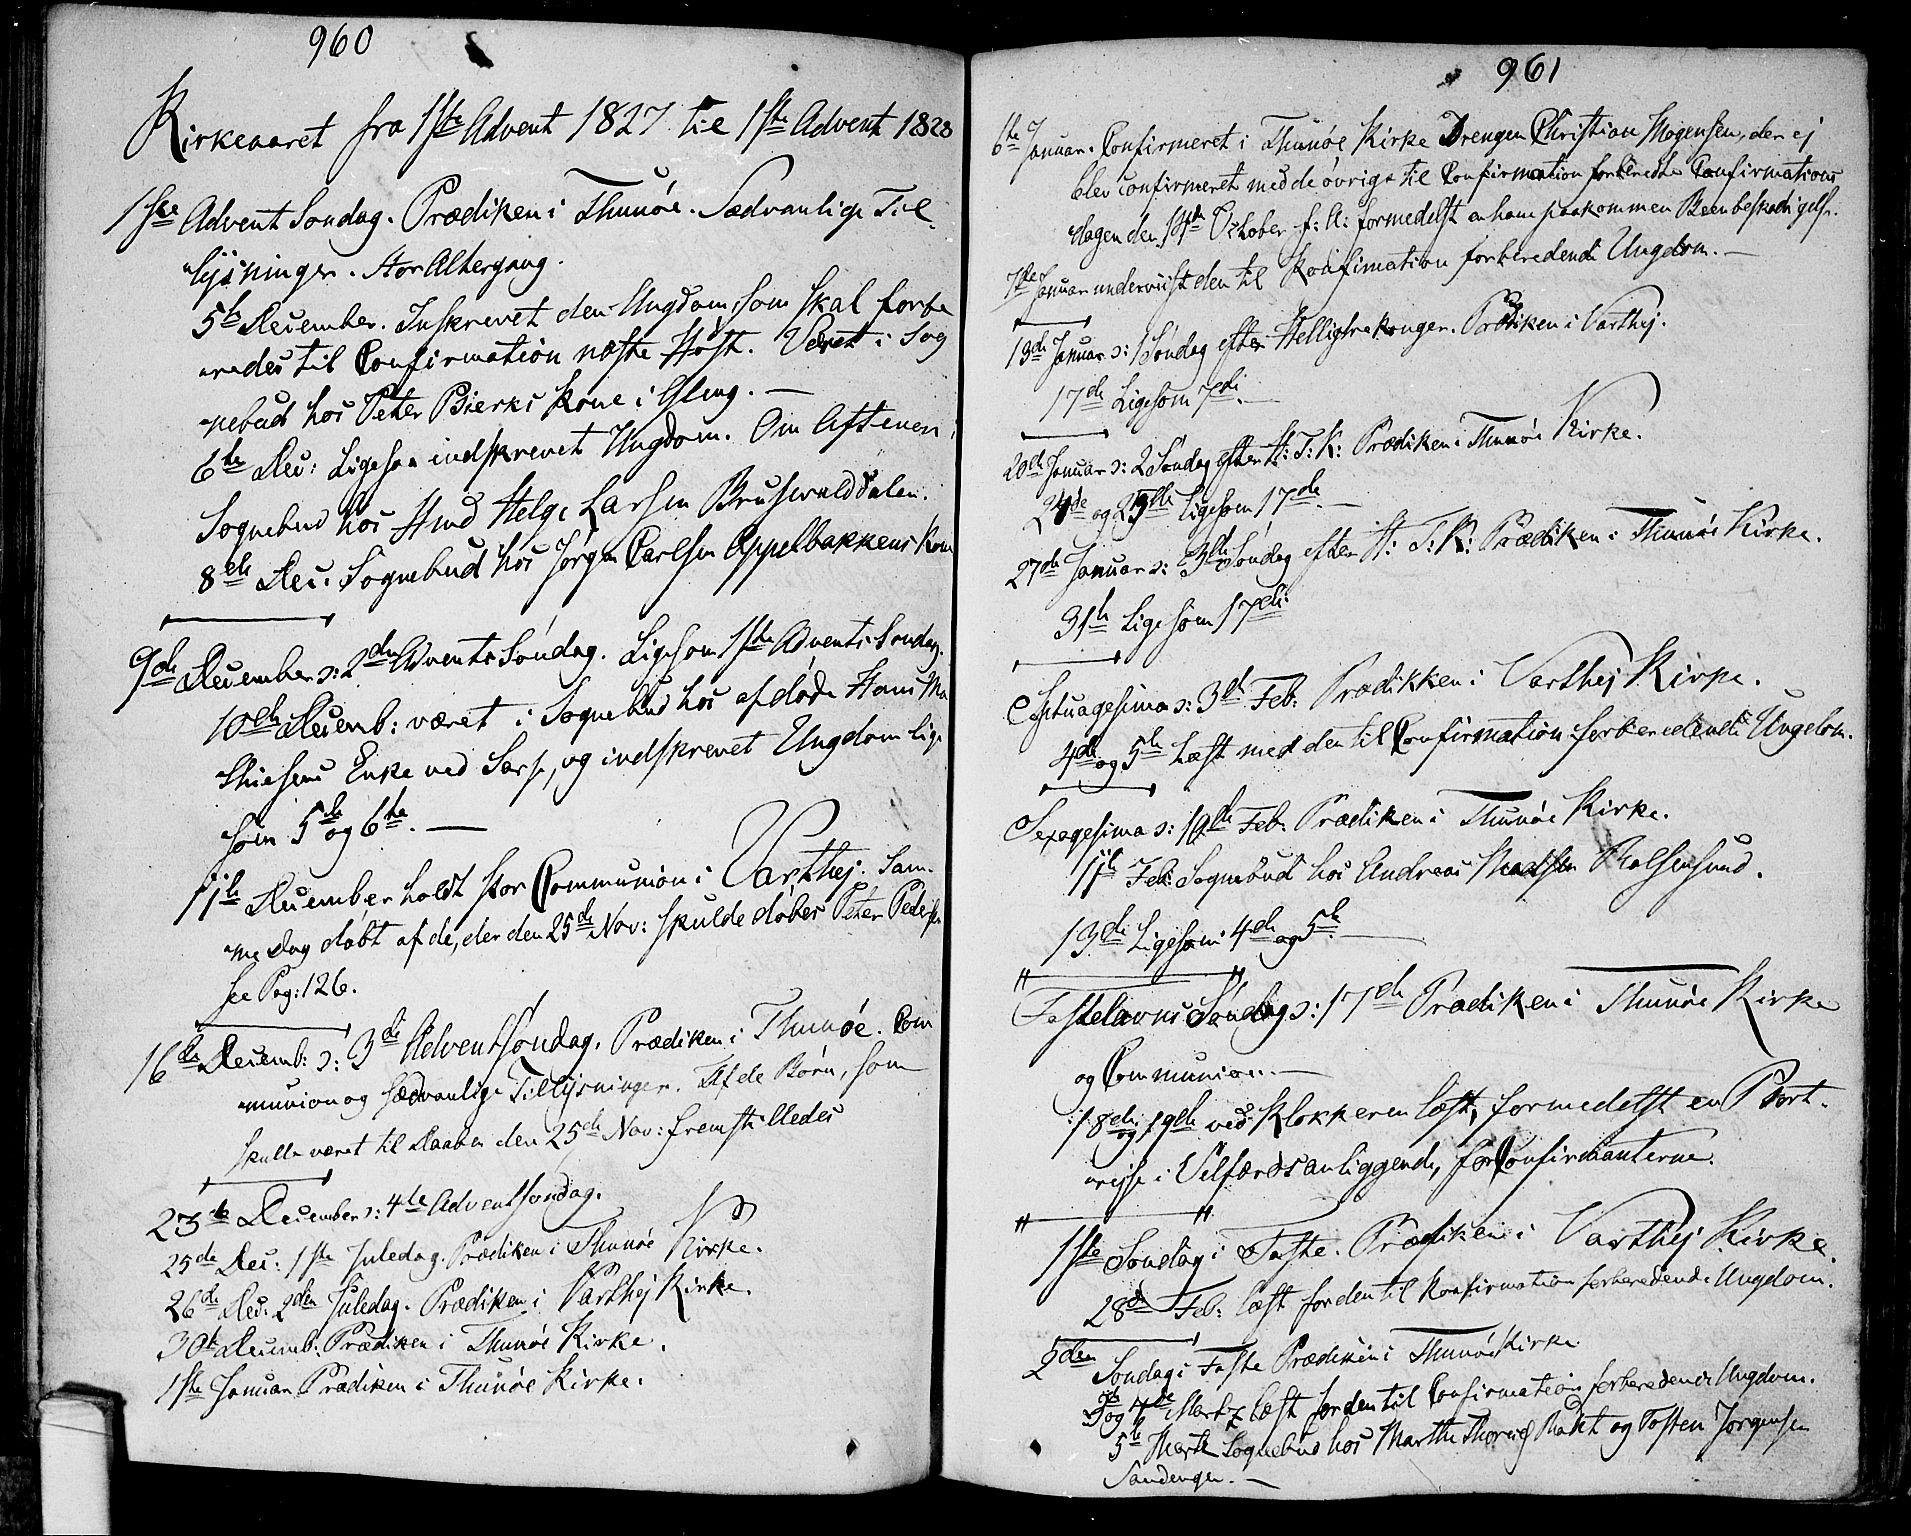 960
Kirkeaaret fra 1ste Advent 1827 til 1ste Advent 1828
1ste Advent Søndag. Prædiken i Thunøe. Sædvanlige Til
lysninger. Stor Altergang.
5te December. Inskrevet den Ungdom som skal forbe
redes til Confirmation næste Høst. Været i Sog
nebud hos Peter Bierks Kone i Gleng. —
6te Dec: Ligesom indskrevet Ungdom. Om Aftenen i
Sognebud hos Hmd Helge Larsen Brusevalddalen.
8de Dec: Sognebud hos Jørgen Carlsen Appelbakkens Kone
9de December ɔ: 2den Advents Søndag. Ligesom 1ste Advents Søndag.
10de Decemb: været i Sognebud hos afdøde Hans Ma
thiesens Enke ved Sarp, og indskrevet Ungdom lige
som 5te og 6te. —
11te December holdt stor Communion i Varthej. Sam-
me Dag døbt af de, der den 25de Nov: skulde døbes Peter Peders
see Pag: 126.
16de Decemb: ɔ: 3de Adventsøndag. Prædiken i Thunøe. Com
munion og sædvanlige Tillysninger. Af de Børn, som
skulle været til Daaben den 25de Nov: fremstilledes
23de December ɔ: 4de Adventsøndag.
25de Dec: 1ste Juledag. Prædiken i Thunøe Kirke.
26de Dec: 2den Juledag. Prædiken i Varthej Kirke.
30te Decemb: Prædiken i Thunøe Kirke.
1ste Januar Prædiken i Thunøe Kirke.
961
6te Januar. Confirmeret i Thunøe Kirke Drengen Christian Mogensen, der ej
blev confirmeret med de øvrige til Confirmation forberedte Confirmations
dagen den 14de October f: A: formedelst en ham paakommen Beenbeskadigelse.
7de Januar underviist den til Konfirmation forberedende Ungdom. —
13de Januar ɔ: 1 Søndag efter Helligtrekonger. Prædiken i Varthej.
17de Ligesom 7de. —
20de Januar ɔ: 2 Søndag efter H: T: K: Prædiken i Thunøe Kirke.
24de og 25de Ligesom 17de. —
27de Januar ɔ: 3de Søndag efter H: T: K: Prædiken i Thunøe Kirke.
31te Ligesom 17de.
Septuagesima ɔ: 3de Feb: Prædikken i Varthej Kirke.
4de og 5te Læst med den til Confirmation forberedende Ungdom.
Sexagesima ɔ: 10de Feb: Prædiken i Thunøe Kirke.
11te Feb: Sognebud hos Andreas Madsen Rolsensund.
13de Ligesom 4de og 5te. —
Fastelavns Søndag ɔ: 17de Prædiken i Thunøe Kirke
og Communion. —
18de og 19de ved Klokkeren læst, formedelst en Bort-
rejse i Velfærdsanliggende, for Confirmanterne.
1ste Søndag i Faste. Prædiken i Varthej Kirke.
28de Feb: læst for den til Konfirmation forberedende Ungdom.
2den Søndag i Faste Prædiken i Thunøe Kirke
3de og 4de Martz læst for den til Confirmation forberedende Ungdom.
5te Martz Sognebud hos Marthe Rakt og Tosten Jørgensen
Sandengen. —